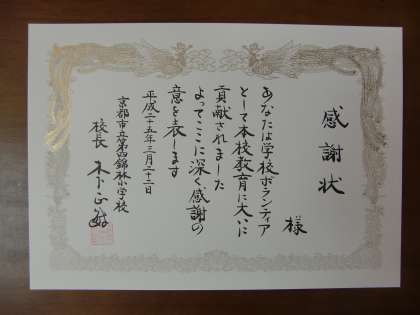 感謝状
様
あなたは学校ボランティア
として本校教育に大いに
貢献されました
よってここに深く感謝の
意を表します
平成二十五年三月二十二日
京都市立第四錦林小学校
校長 木下